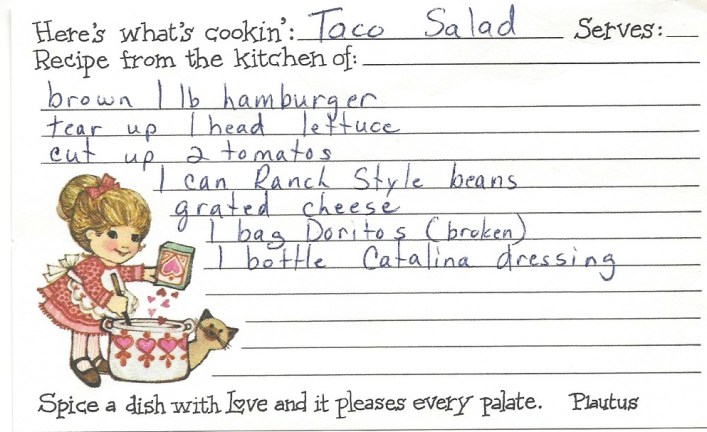 Here's what's cookin': Taco Salad Serves:
Recipe from the kitchen of:
brown 1 lb hamburger
tear up 1 head lettuce
cut up 2 tomatos
1 can Ranch Style beans
grated cheese
1 bag Doritos (broken)
1 bottle Catalina dressing
Spice a dish with Love and it pleases every palate. Plautus